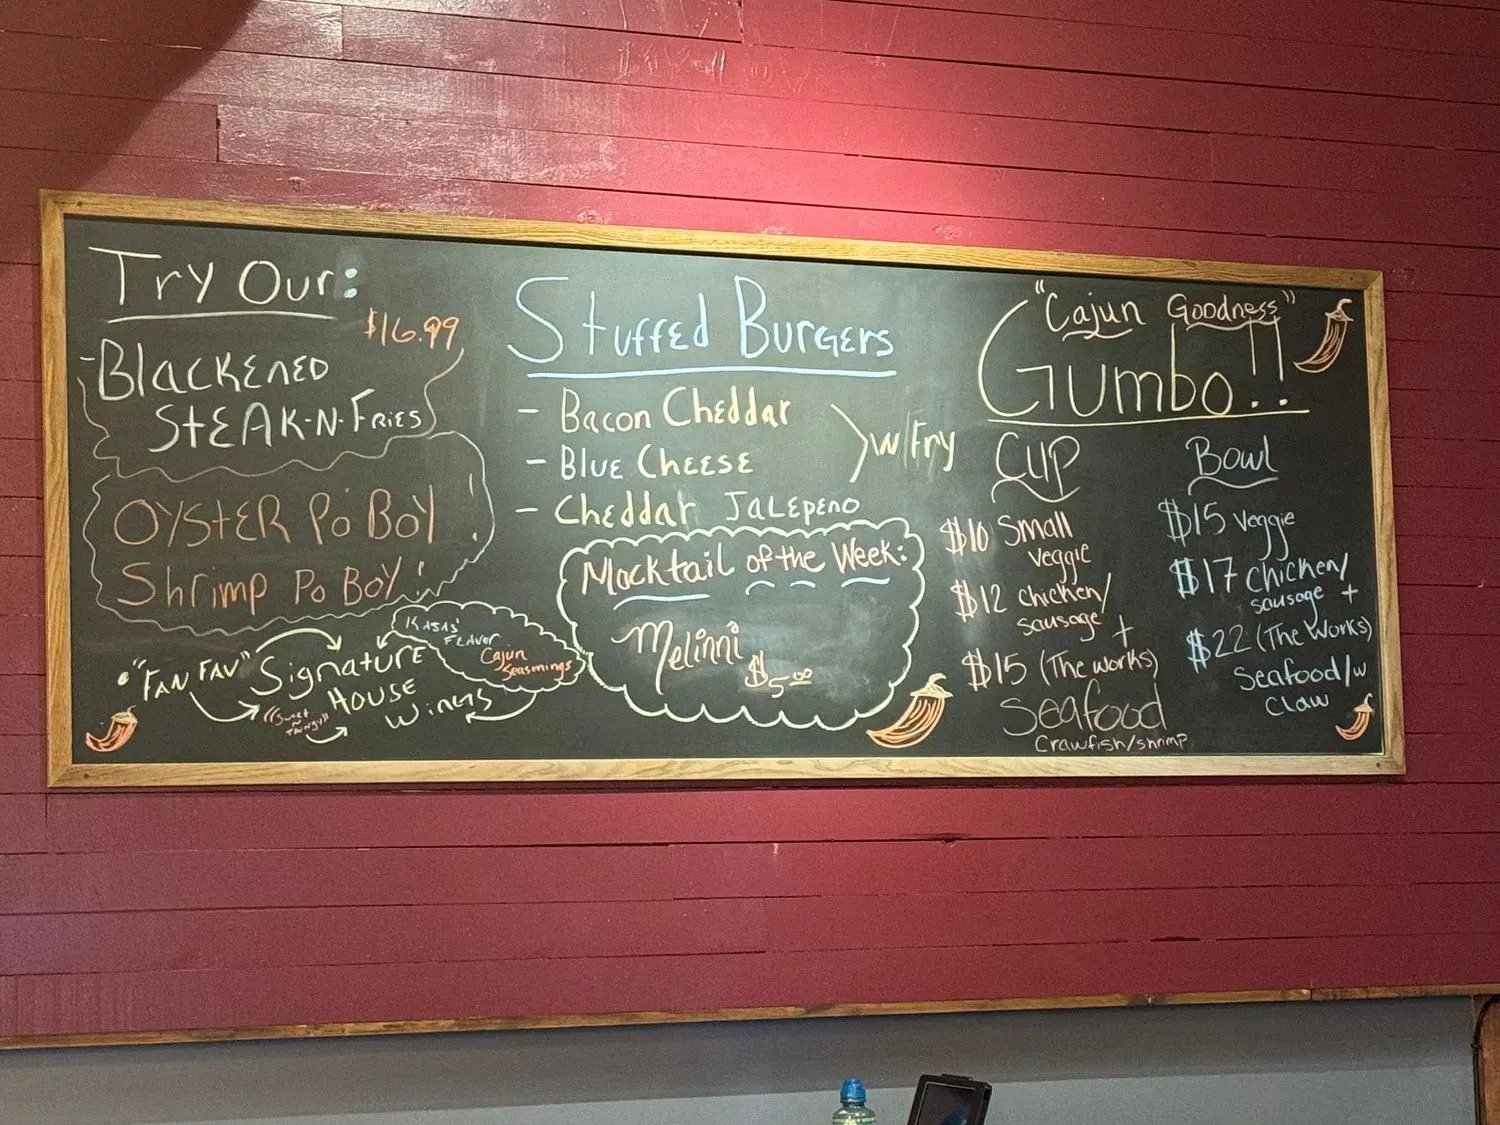 Try Our:
$16.99
- Blackened
Steak-N-Fries
Oyster Po Boy!
Shrimp Po Boy!
"Fan Fav" Signature
House
Wings
"Sweet
N
Tangy"
Kasas'
Flavor
Cajun
Seasonings
Stuffed Burgers
- Bacon Cheddar
- Blue Cheese
- Cheddar Jalepeno
w/Fry
Mocktail of the Week:
Melinni
$5.00
"Cajun Goodness"
Gumbo!!
Cup
$10 Small
Veggie
$12 chicken/
sausage +
$15 (The works)
Seafood
Crawfish/shrimp
Bowl
$15 Veggie
$17 chicken/
sausage +
$22 (The Works)
Seafood/w
Claw